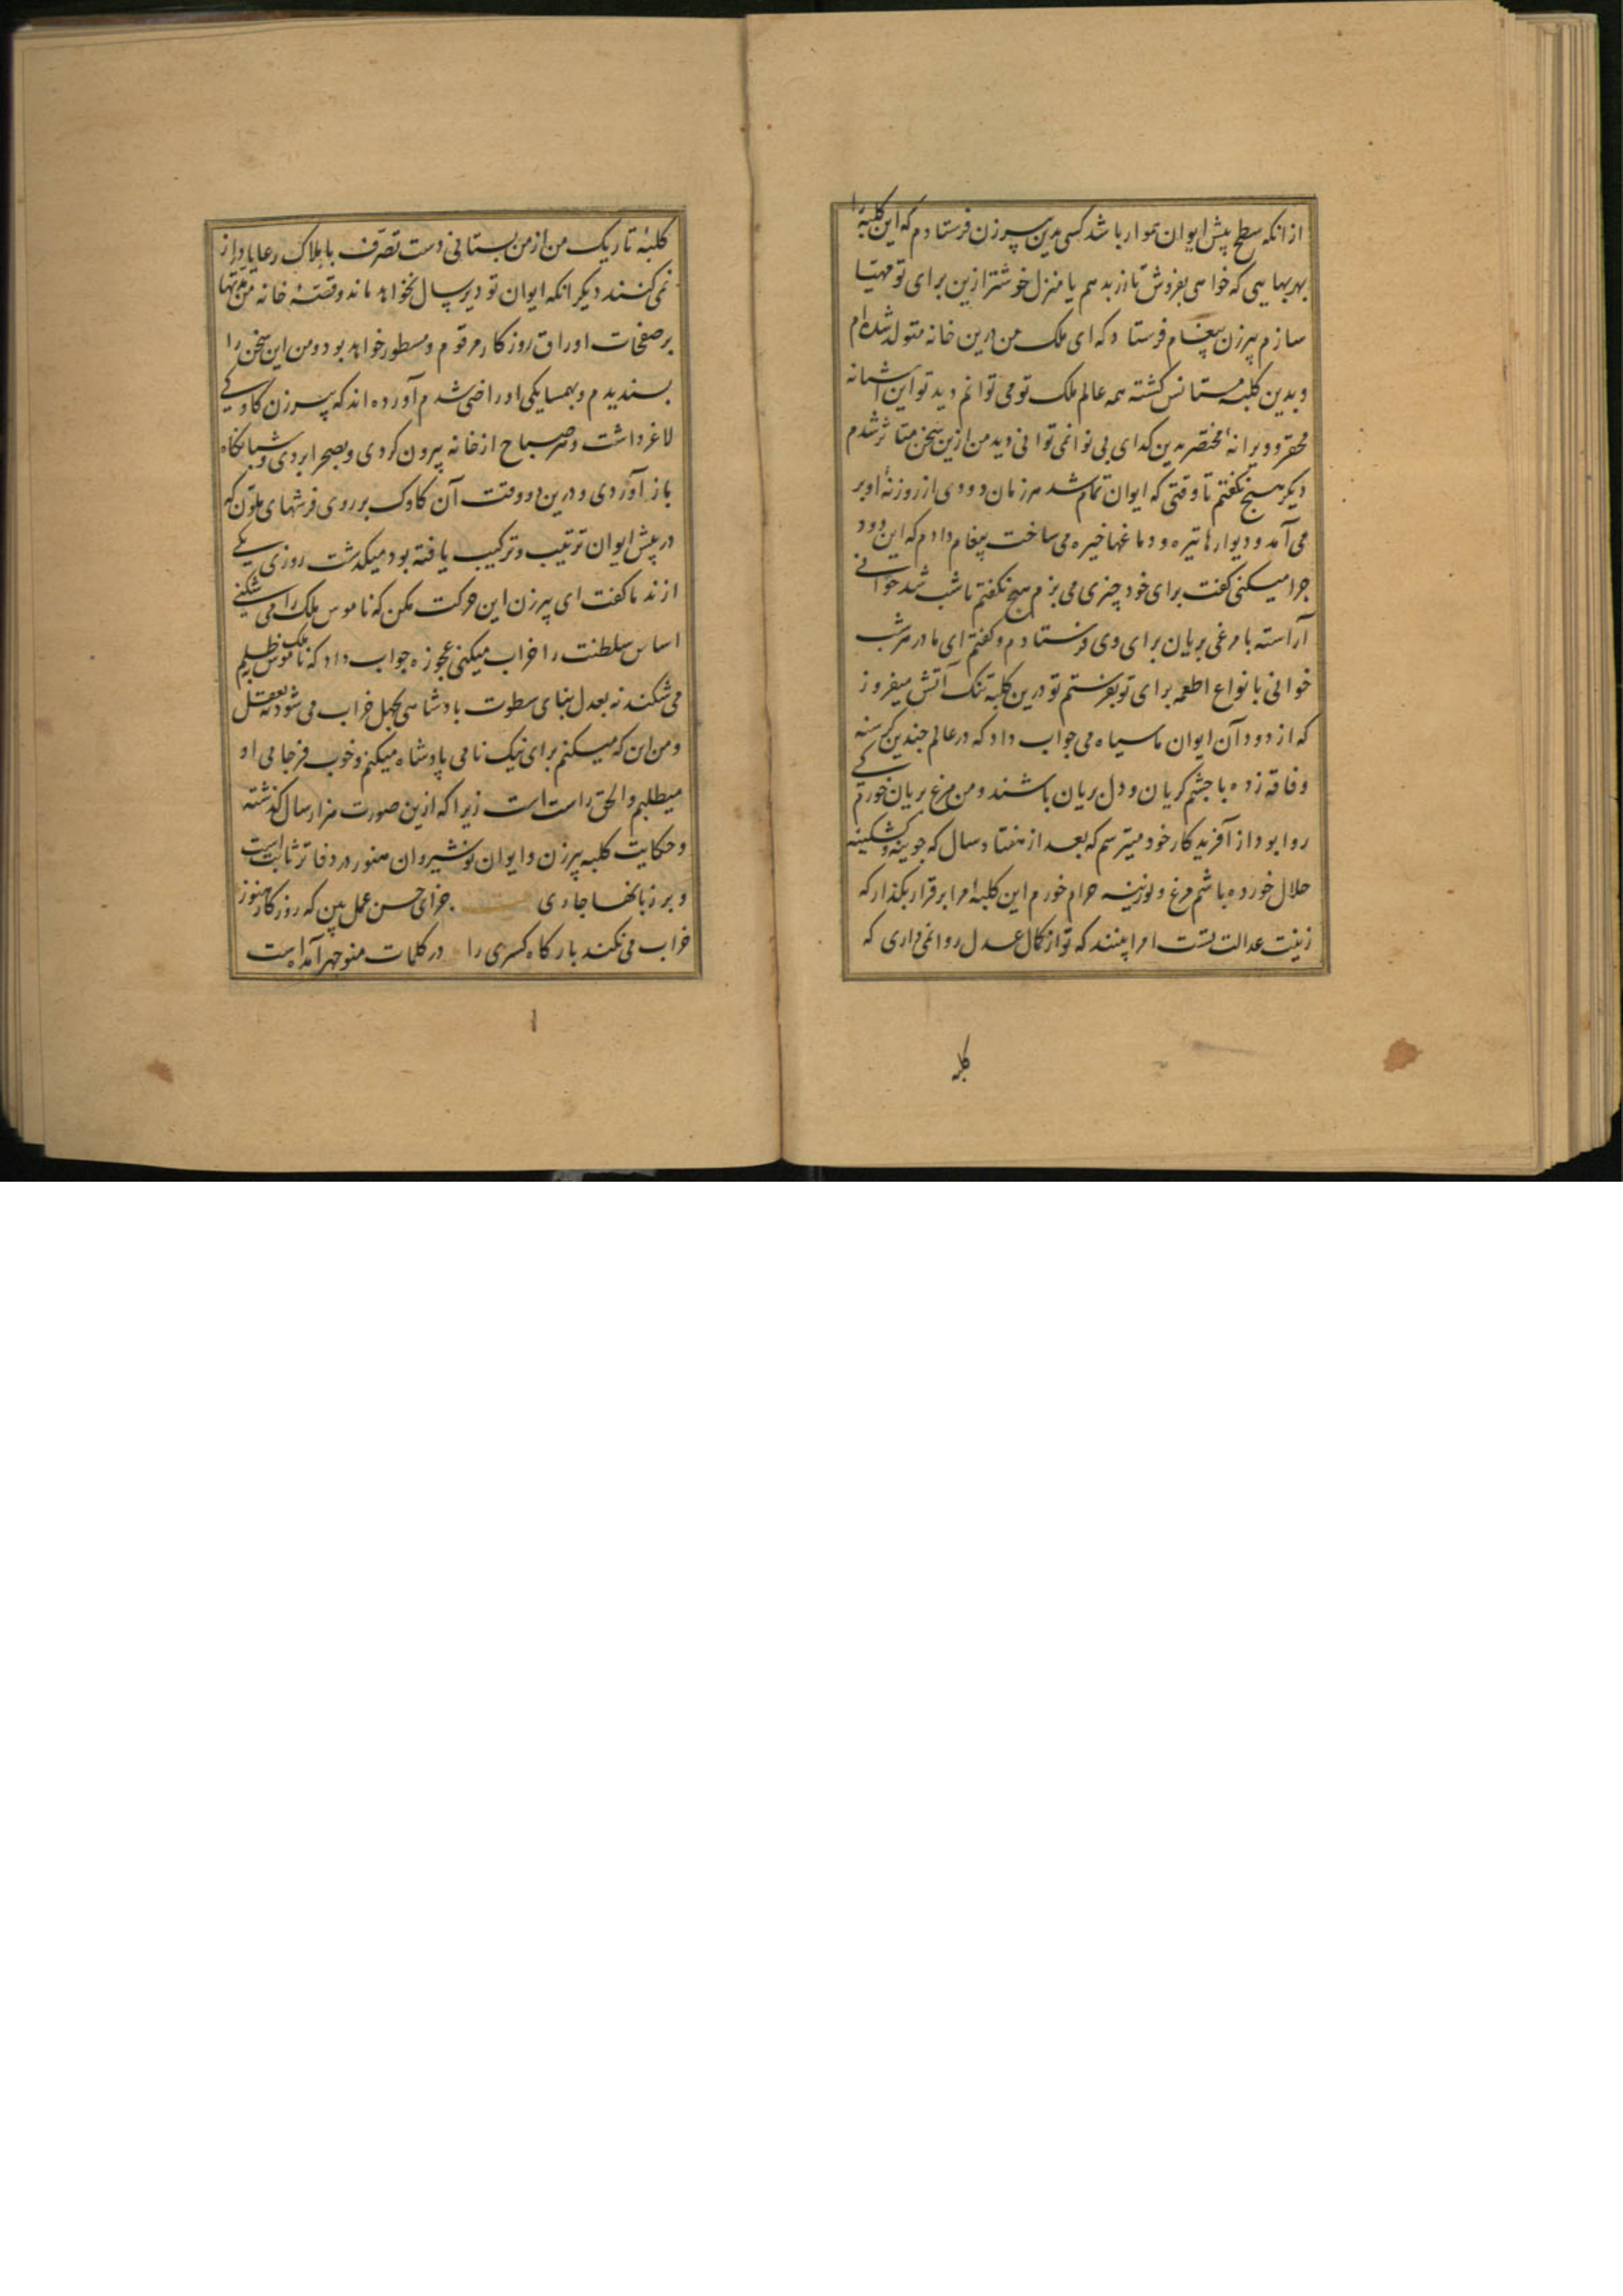 از انکه سطح پیش ایوان هموار باشد کسی بدین پیرزن فرستادم که این کلبه را
بهر بهایی که خواهی بفروش تا زر بدهم یا منزل خوشتر ازین برای تو مهیا
سازم پیرزن پیغام فرستاد که ای ملک من درین خانه متولد شده‌ام
و بدین کلبه مستانس کشته همه عالم ملک تو می توانم دید تو این اشیانه
محقر و ویرانهٔ مختصر بدین کدای بی نوا نمی توانی دید من ازین سخن متاثر شدم
دیکر هیچ نکفتم تا وقتی که ایوان تمام شد هر زمان دودی از روزنهٔ او بر
می آمد و دیوارها تیره و دماغها خیره می ساخت پیغام دادم که این دود
جرا میکنی کفت برای خود چیزی می پزم هیچ نکفتم تا شب شد خوانی
آراسته با مرغی بریان برای وی فرستادم و کفتم ای مادر هر شب
خوانی با نواع اطعمه برای تو بفرستم تو درین کلبهٔ تنک آتش میفروز
که از دود آن ایوان ما سیاه می جواب داد که در عالم جندین کرسنه
و فاقه زده با جشم کریان و دل بریان باشند و من مرغ بریان خورم کی
روا بود از آفریدکار خود میترسم که بعد از هفتاد سال که جوینه و کشکینه
حلال خورده باشم مرغ و لوزینه حرام خورم این کلبهٔ مرا برقرار بکذار که
زینت عدالت تست امرا بینند که تو از کمال عدل روا نمی داری که
کلبه
کلبهٔ تاریک من از من بستانی دست تصرف باملاک رعایا دراز
نمی کنند دیکر انکه ایوان تو دیر سال نخواهد ماند و قصهٔ خانه من مدتها
بر صفحات اوراق روزکار مرقوم و مسطور خواهد بود و من این سخن را
بسندیدم و بهمسایکی او راضی شدم آورده اند که پیرزن کاوکی
لاغر داشت و هر صباح از خانه بیرون کردی و بصحرا بردی و شبانکاه
باز آوردی و درین دو وقت آن کاوک بر روی فرشهای ملون که
در پیش ایوان ترتیب و ترکیب یافته بود میکذشت روزی یکی
از ندما کفت ای پیرزن این حرکت مکن که ناموس ملک را می شکنی
اساس سلطنت را خراب میکنی عجوزه جواب داد که ناموس ملک ظلم
می شکند نه بعدل بنای سطوت بادشاهی بجهل خراب می شود نه بعقل
و من این که میکنم برای نیک نامی پادشاه میکنم و خوب فرجامی او
میطلبم و الحق راست است زیرا که ازین صورت هزار سال کذشته
و حکایت کلبه پیرزن و ایوان نوشیروان هنوز در دفاتر ثابت است
و بر زبانها جاری بیت جزای حسن عمل بین که روزکار هنوز
خراب می نکند بارکاه کسری را در کلمات منوجهر آمده است